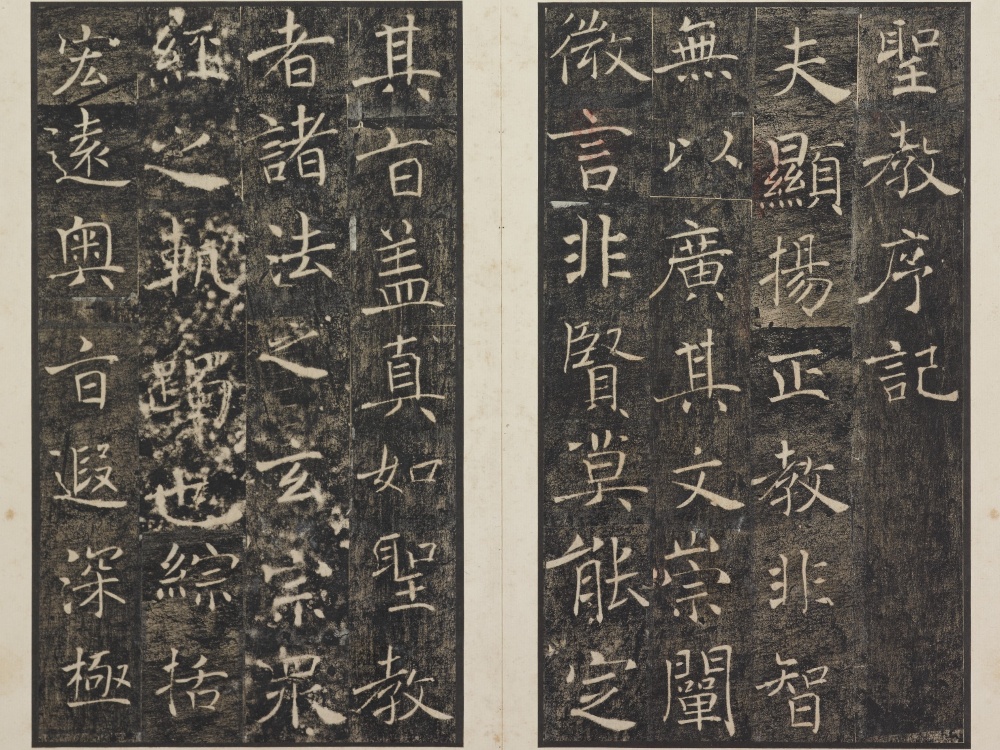 聖教序記
夫顯揚正教非智
無以廣其文崇闡
微言非賢莫能定
其盲盖真如聖教
者諸法之玄宗衆
經之軌躅也綜括
宏遠奥盲遐深極